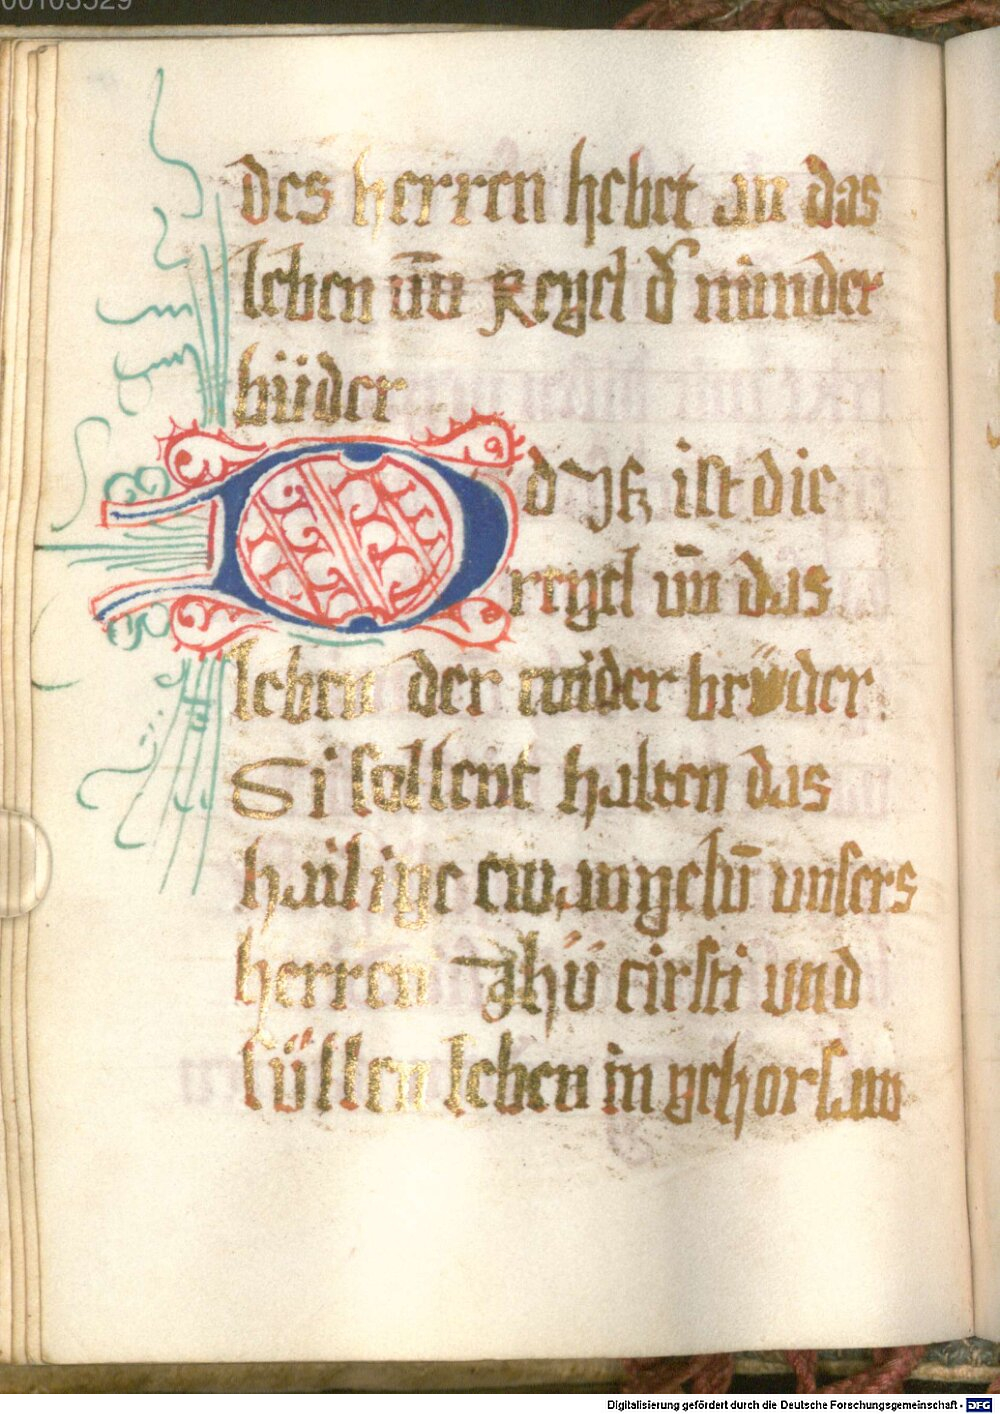 00103529
des herren hebet an das
leben uñ Regel dˢ minder
brüder
D dJß ist die
regel uñ das
leben der mīder brüder
Si sollent halten das
hailige ewangelīu unsers
herren Jhū cirsti und
süllen leben in gehorsam
Digitalisierung gefördert durch die Deutsche Forschungsgemeinschaft - DFG